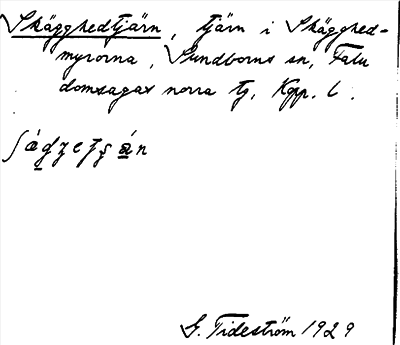 Skäggkedtjärn, tjärn i Skäggked-
myrorna, Sundborns sn, Falu
domsagas norra tg, Kopp. l.
G. Tideström 1929